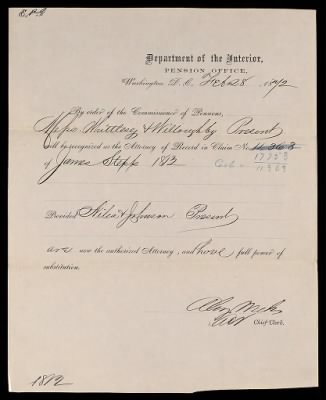 Department of the Interior,
PENSION OFFICE,
Washington, D. C., Feb 28 1872
By order of the Commissioner of Pensions,
Messrs Whittlesey & Willoughby Present
will be recognized as the Attorney of Record in Claim No.
17753
of James Stepp 1812
11369
Provided & Johnson Present
are now the authorized Attorney, and have full power of
substitution.
Chief Clerk.
1812